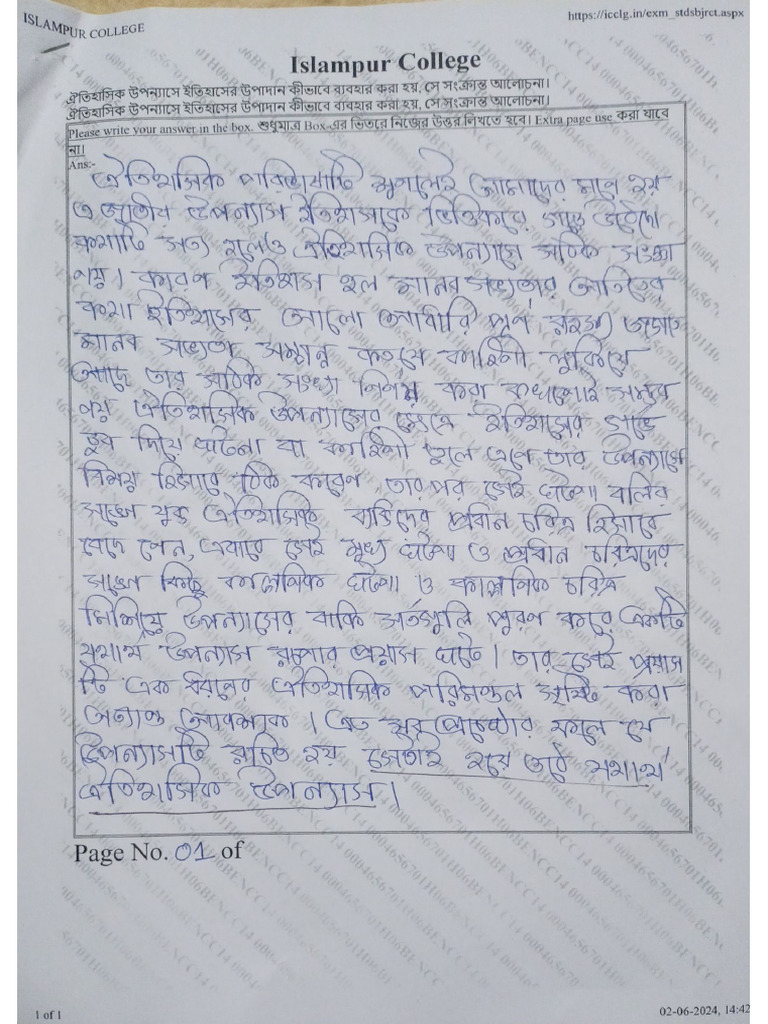 ISLAMPUR COLLEGE
https://icclg.in/exm_stdsbjrct.aspx
Islampur College
ঐতিহাসিক উপন্যাসে ইতিহাসের উপাদান কীভাবে ব্যবহার করা হয়, সে সংক্রান্ত আলোচনা।
ঐতিহাসিক উপন্যাসে ইতিহাসের উপাদান কীভাবে ব্যবহার করা হয়, সে সংক্রান্ত আলোচনা।
Please write your answer in the box. শুধুমাত্র Box-এর ভিতরে নিজের উত্তর লিখতে হবে। Extra page use করা যাবে
না।
Ans:-
ঐতিহাসিক পরিভাষাটি শুনলেই আমাদের মনে হয়
এ জাতীয় উপন্যাস ইতিহাসকে ভিত্তিকরে গড়ে উঠেছে
কথাটি সত্য হলেও ঐতিহাসিক উপন্যাসে সঠিক সংজ্ঞা
নয়। কারণ ইতিহাস হল মানব সভ্যতার অতিতের
কথা ইতিহাসের আলো আধাঁরি পূর্ণ জগতে
মানব সভ্যতা কতযে কাহিনী লুকিয়ে
আছে তার সঠিক সংখ্যা নির্ণয় করা কখনোই সম্ভব
নয় ঐতিহাসিক উপন্যাসের ক্ষেত্রে ইতিহাসের গর্ভে
ডুব দিয়ে ঘটনা বা কাহিনী তুলে এনে তার উপন্যাসে
বিষয় হিসাবে ঠিক করেন, তারপর সেই ঘটনা বলির
সঙ্গে যুক্ত ঐতিহাসিক ব্যক্তিদের প্রধান চরিত্র হিসাবে
বেছে নেন, এবারে সেই মুখ্য ঘটনা ও প্রধান চরিত্রদের
সঙ্গে কিছু কাল্পনিক ঘটনা ও কাল্পনিক চরিত্র
মিশিয়ে উপন্যাসের বাকি সর্তগুলি পূরণ করে একটি
যথার্থ উপন্যাস রচনার প্রয়াস ঘটে। তার সেই প্রয়াস
টি এক ধরনের ঐতিহাসিক পরিমন্ডল সৃষ্টি করা
অত্যন্ত আবশ্যক। এত সব প্রচেষ্টার ফলে যে
উপন্যাসটি রচিত হয় সেটাই হয়ে ওঠে যথার্থ
ঐতিহাসিক উপন্যাস।
Page No. 01 of
1 of 1
02-06-2024, 14:42